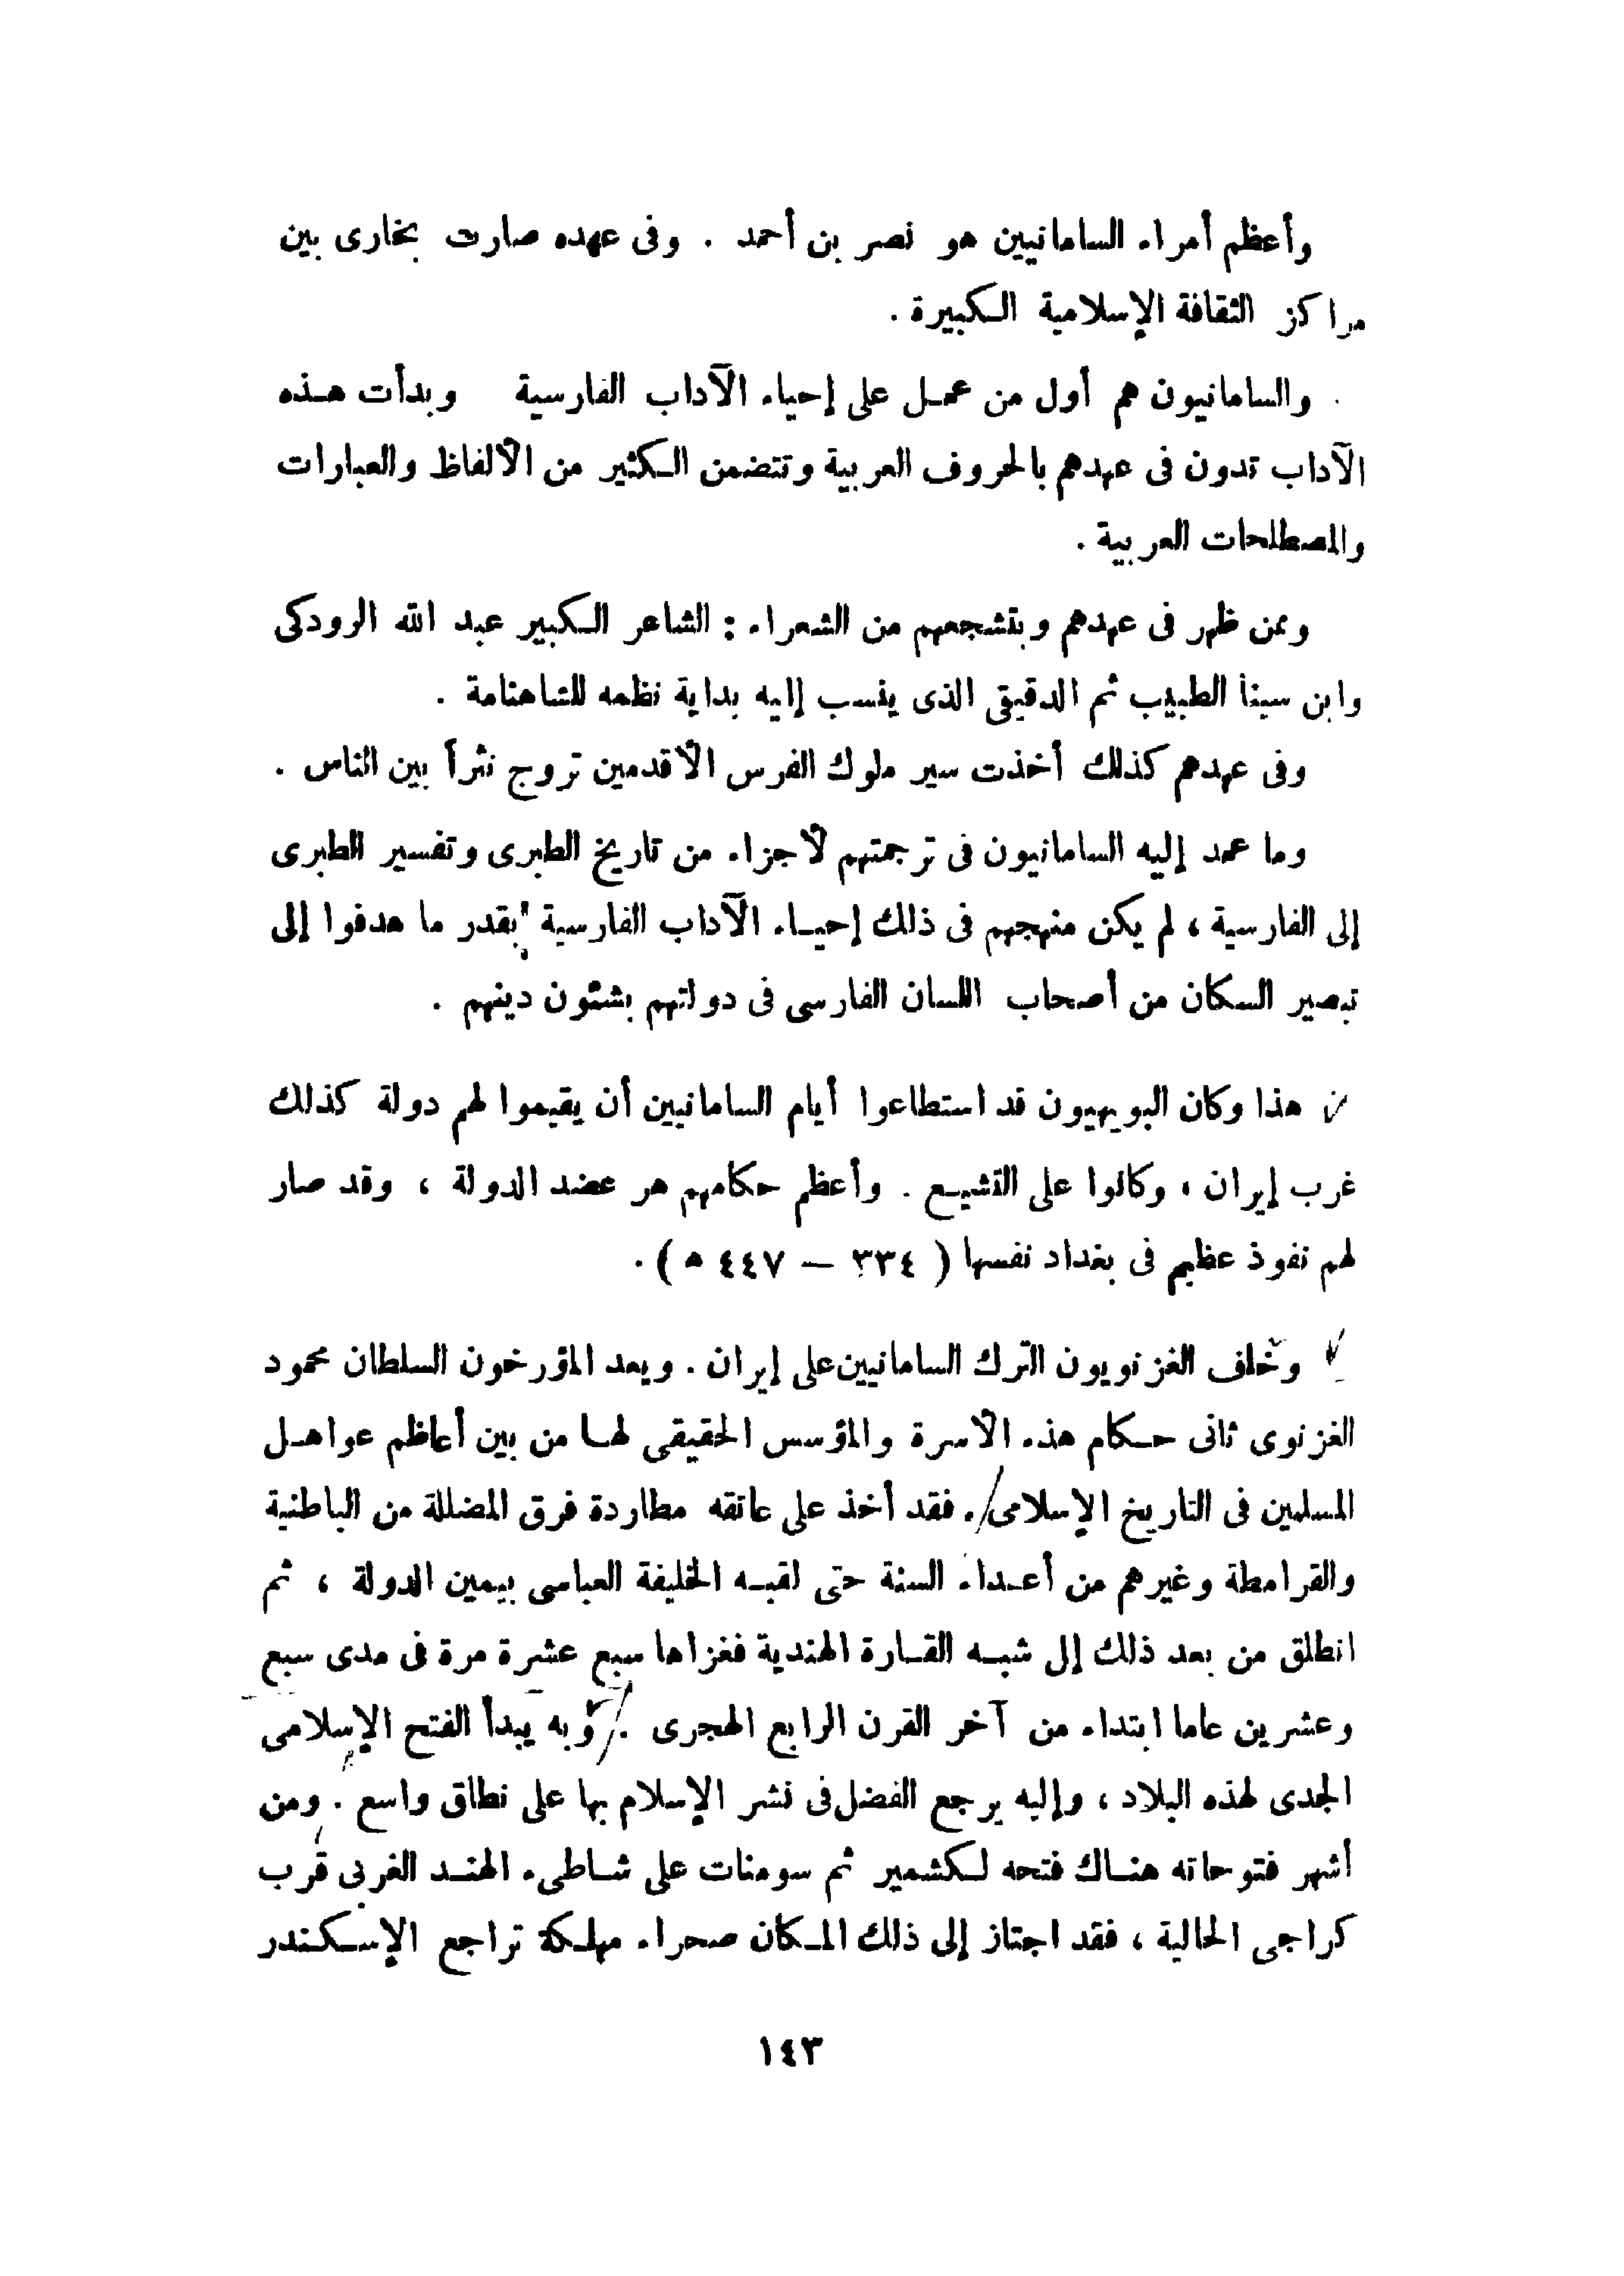 وأعظم أمراء السامانيين هو نصر بن أحمد . وفى عهده صارت بخارى بين
مراكز الثقافة الإسلامية الكبيرة .
والسامانيون هم أول من عمل على إحياء الآداب الفارسية وبدأت هذه
الآداب تدون فى عهدهم بالحروف العربية وتتضمن الكثير من الألفاظ والعبارات
والمصطلحات العربية .
وممن ظهر فى عهدهم وبتشجعهم من الشعراء : الشاعر الكبير عبد الله الرودكى
وابن سينا الطبيب ثم الدقيقى الذى ينسب إليه بداية نظمه للشاهنامة .
وفى عهدهم كذلك أخذت سير ملوك الفرس الأقدمين تروج نثراً بين الناس .
وما عمد إليه السامانيون فى ترجمتهم لأجزاء من تاريخ الطبرى وتفسير الطبرى
إلى الفارسية ، لم يكن منهجهم فى ذلك إحياء الآداب الفارسية بقدر ما هدفوا إلى
تبصير السكان من أصحاب اللسان الفارسى فى دولتهم بشئون دينهم .
هذا وكان البويهيون قد استطاعوا أيام السامانيين أن يقيموا لهم دولة كذلك
غرب إيران ، وكانوا على التشيع . وأعظم حكامهم هر عضد الدولة ، وقد صار
لهم نفوذ عظيم فى بغداد نفسها ( ٣٣٤ — ٤٤٧ ه ) .
وخلف الغزنويون الترك السامانيين على إيران . ويعد المؤرخون السلطان محمود
الغزنوى ثانى حكام هذه الأسرة والمؤسس الحقيقى لها من بين أعاظم عواهل
المسلمين فى التاريخ الإسلامى . فقد أخذ على عاتقه مطاردة فرق المضللة من الباطنية
والقرامطة وغيرهم من أعداء السنة حتى لقبه الخليفة العباسى بيمين الدولة ، ثم
انطلق من بعد ذلك إلى شبه القارة الهندية فغزاها سبع عشرة مرة فى مدى سبع
وعشرين عاما ابتداء من آخر القرن الرابع الهجرى . وبه يبدأ الفتح الإسلامى
الجدى لهذه البلاد ، وإليه يرجع الفضل فى نشر الإسلام بها على نطاق واسع . ومن
أشهر فتوحاته هناك فتحه لكشمير ثم سومنات على شاطىء الهند الغربى قرب
كراجى الحالية ، فقد اجتاز إلى ذلك المكان صحراء مهلكة تراجع الإسكندر
١٤٣